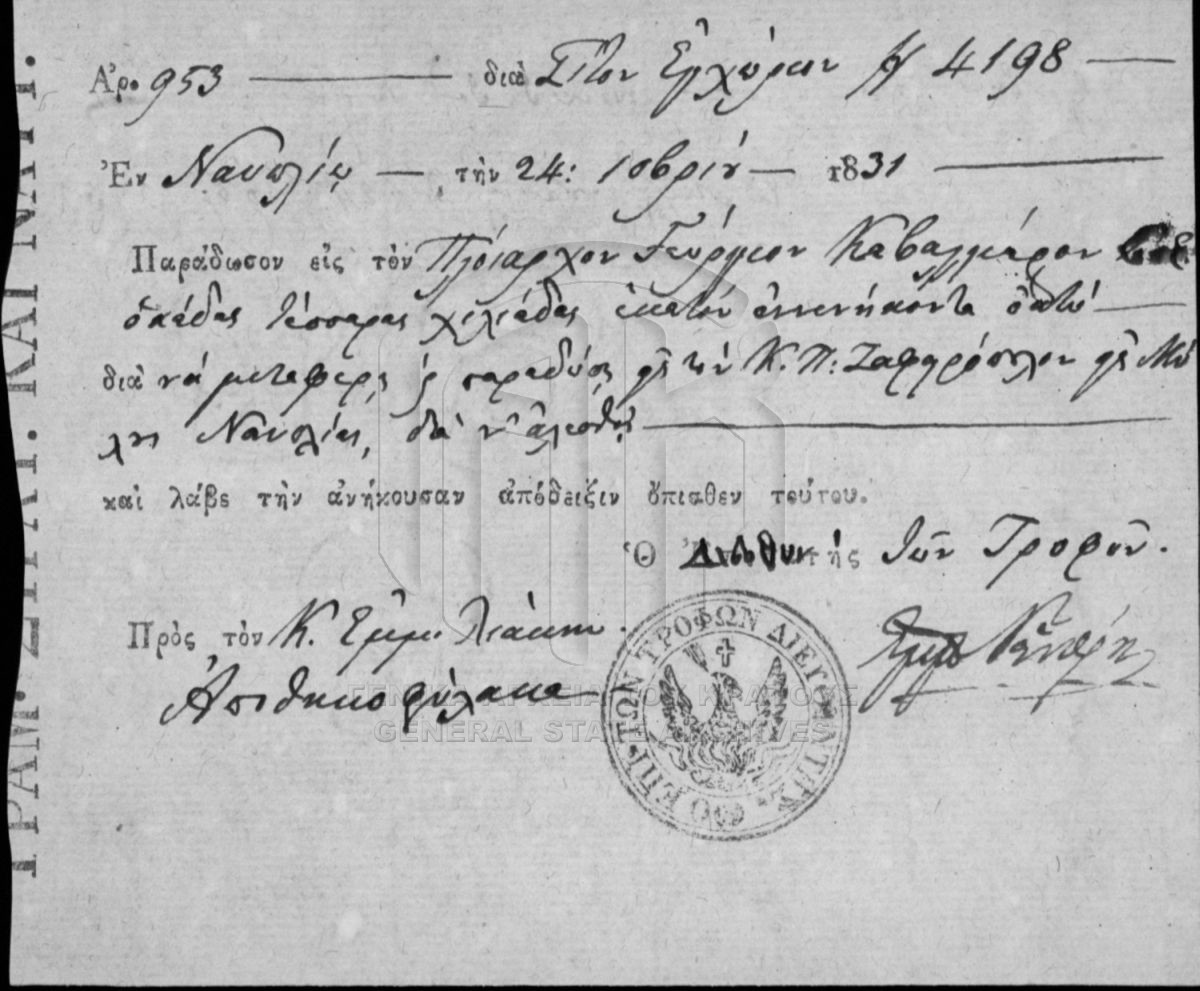 ΓΡΑΜ. ΣΤΡΑΤ. ΚΑΙ ΝΑΥΤ.
Ἀρ. 953 — διὰ Σῖτον Ἐγχώριον 4198 —
Ἐν Ναυπλίῳ — τὴν 24: 10βρίου — 1831 —
Παράδωσον εἰς τὸν Πλοίαρχον Γεώργιον Καβαλλιέρον
ὀκάδας τέσσαρας χιλιάδας ἑκατὸν ἐννενήκοντα ὀκτώ —
διὰ νὰ μεταφέρῃ παραδώσῃ εἰς τὸν Κ. Π: Ζαφυρόπουλον εἰς Μύ
λους Ναυπλίας, διὰ ν' ἀλεσθῇ —
καὶ λάβε τὴν ἀνήκουσαν ἀπόδειξιν ὄπισθεν τούτου.
Ὁ Διευθυντής τῶν Τροφῶν.
Πρὸς τὸν Κ. Ἐμμ. Λιάκην.
Ἀποθηκοφύλακα
Ο ΕΠΙ ΤΩΝ ΤΡΟΦΩΝ ΔΙΕΥΘΥΝΤΗΣ
ΓΕΝΙΚΑ ΑΡΧΕΙΑ ΤΟΥ ΚΡΑΤΟΥΣ
GENERAL STATE ARCHIVES